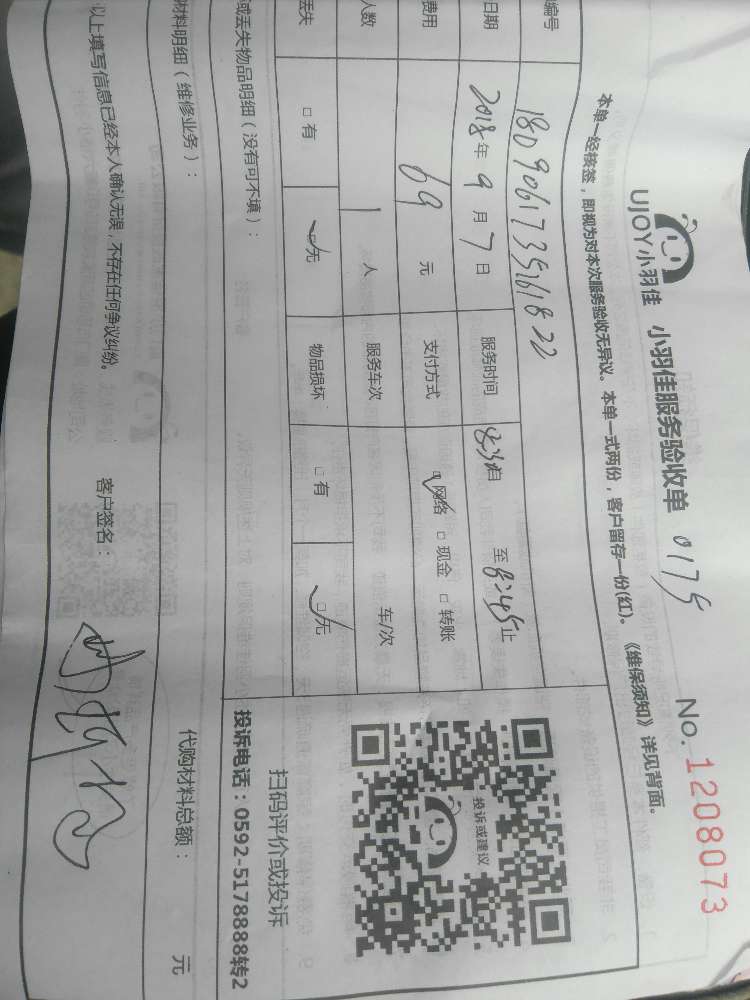 UJOY小羽佳 小羽佳服务验收单 0175 No. 1208073
本单一经核签，即视为对本次服务验收无异议。本单一式两份，客户留存一份(红)。《维保须知》详见背面。
编号 1809061735161822
日期 2018年9月7日 服务时间 8:30自 至8:45止
费用 69元 支付方式 ☑网络 □现金 □转账
人数 1人 服务车次 车/次
丢失 □有 ☑无 物品损坏 □有 ☑无
投诉或建议
扫码评价或投诉
投诉电话：0592-5178888转2
或丢失物品明细（没有可不填）：
材料明细（维修业务）： 代购材料总额： 元
以上填写信息已经本人确认无误，不存在任何争议纠纷。 客户签名：